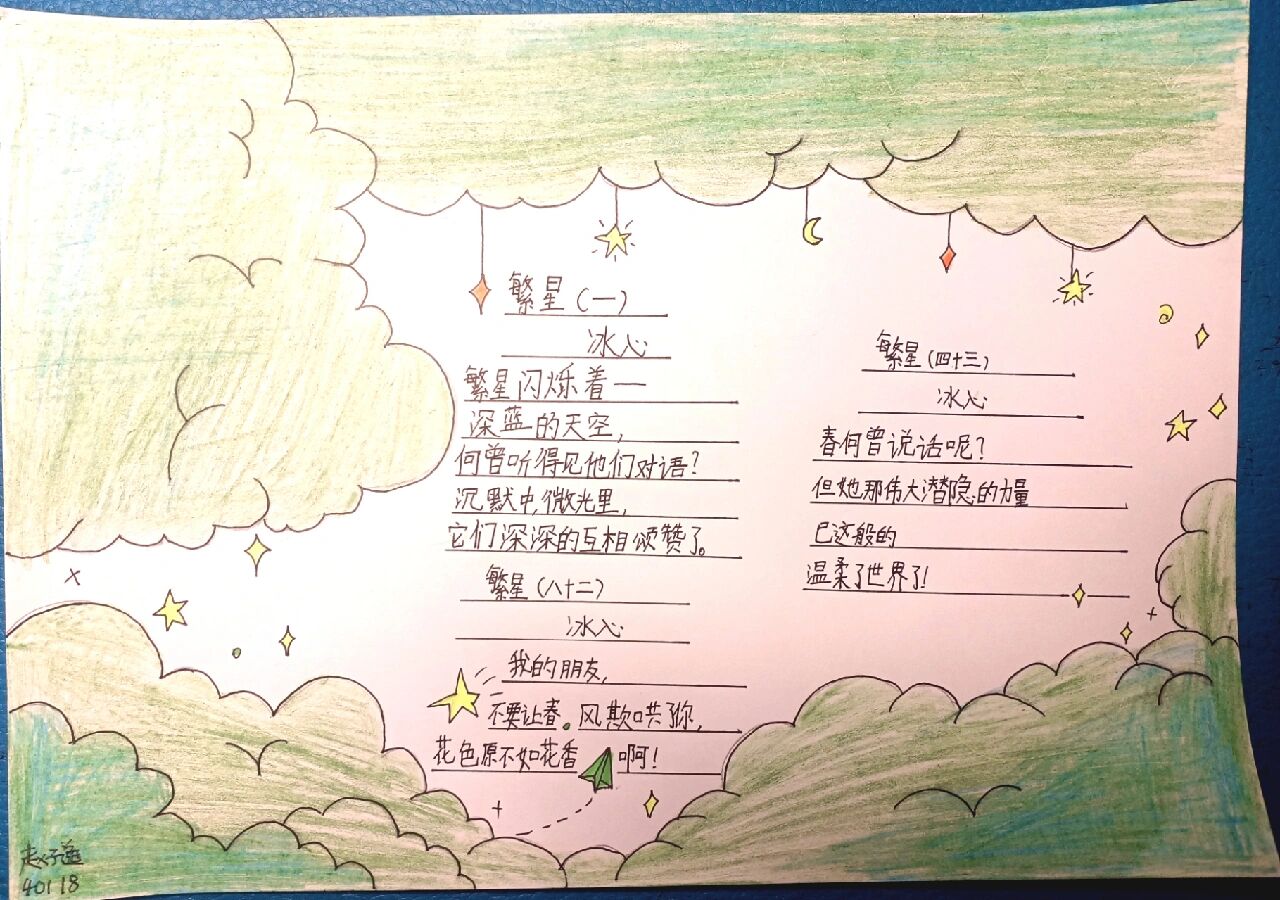 繁星(一)
冰心
繁星闪烁着一
深蓝的天空,
何曾听得见他们对语?
沉默中,微光里,
它们深深的互相颂赞了。
繁星(八十二)
冰心
我的朋友,
不要让春风欺哄了你,
花色原不如花香啊!
繁星(四十三)
冰心
春何曾说话呢?
但她那伟大潜隐的力量
已这般的
温柔了世界了!
赵子
40118